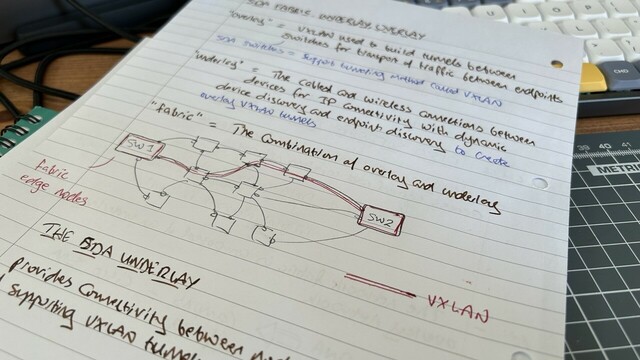 SDA FABRIC UNDERLAY/OVERLAY
"overlay" = VXLAN used to build tunnels between
switches for transport of traffic between endpoints
SDA switches = support tunneling method called VXLAN
"underlay" = The cabled and wireless connections between
devices for IP connectivity with dynamic
device discovery and endpoint discovery to create
overlay VXLAN tunnels
"fabric" = The combination of overlay and underlay
SW1
fabric
edge nodes
SW2
VXLAN
THE SDA UNDERLAY
provides connectivity between
supporting VXLAN tunnels
CMD
39 40 41
METRIC